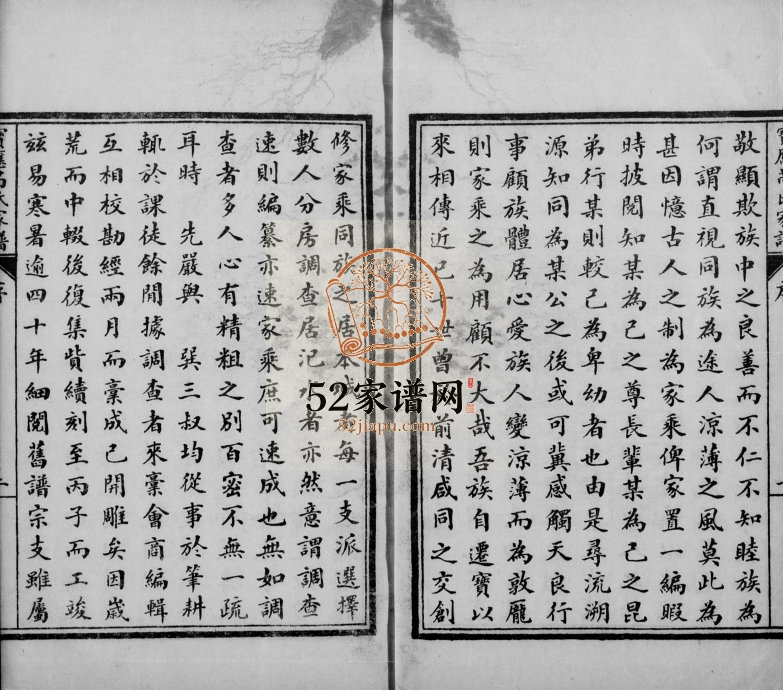 敬顯欺族中之良善而不仁不知睦族為
何謂直視同族為途人涼薄之風莫此為
甚因憶古人之制為家乘俾家置一編暇
時披閱知某為己之尊長輩某為己之昆
弟行某則較己為卑幼者也由是尋流溯
源知同為某公之後或可冀感觸天良行
事顧族體居心愛族人變涼薄而為敦龐
則家乘之為用顧不大哉吾族自遷寶以
來相傳近已十世曾 前清咸同之交創
修家乘同族之居本 每一支派選擇
數人分房調查居氾水者亦然意謂調查
速則編纂亦速家乘庶可速成也無如調
查者多人心有精粗之別百密不無一疏
耳時 先嚴與 巽三叔均從事於筆耕
輒於課徒餘閒據調查者來稾會商編輯
互相校勘經兩月而稾成已開雕矣因歲
荒而中輟後復集貲續刻至丙子而工竣
茲易寒暑逾四十年細閱舊譜宗支雖屬
52家谱网
52jiapu.com